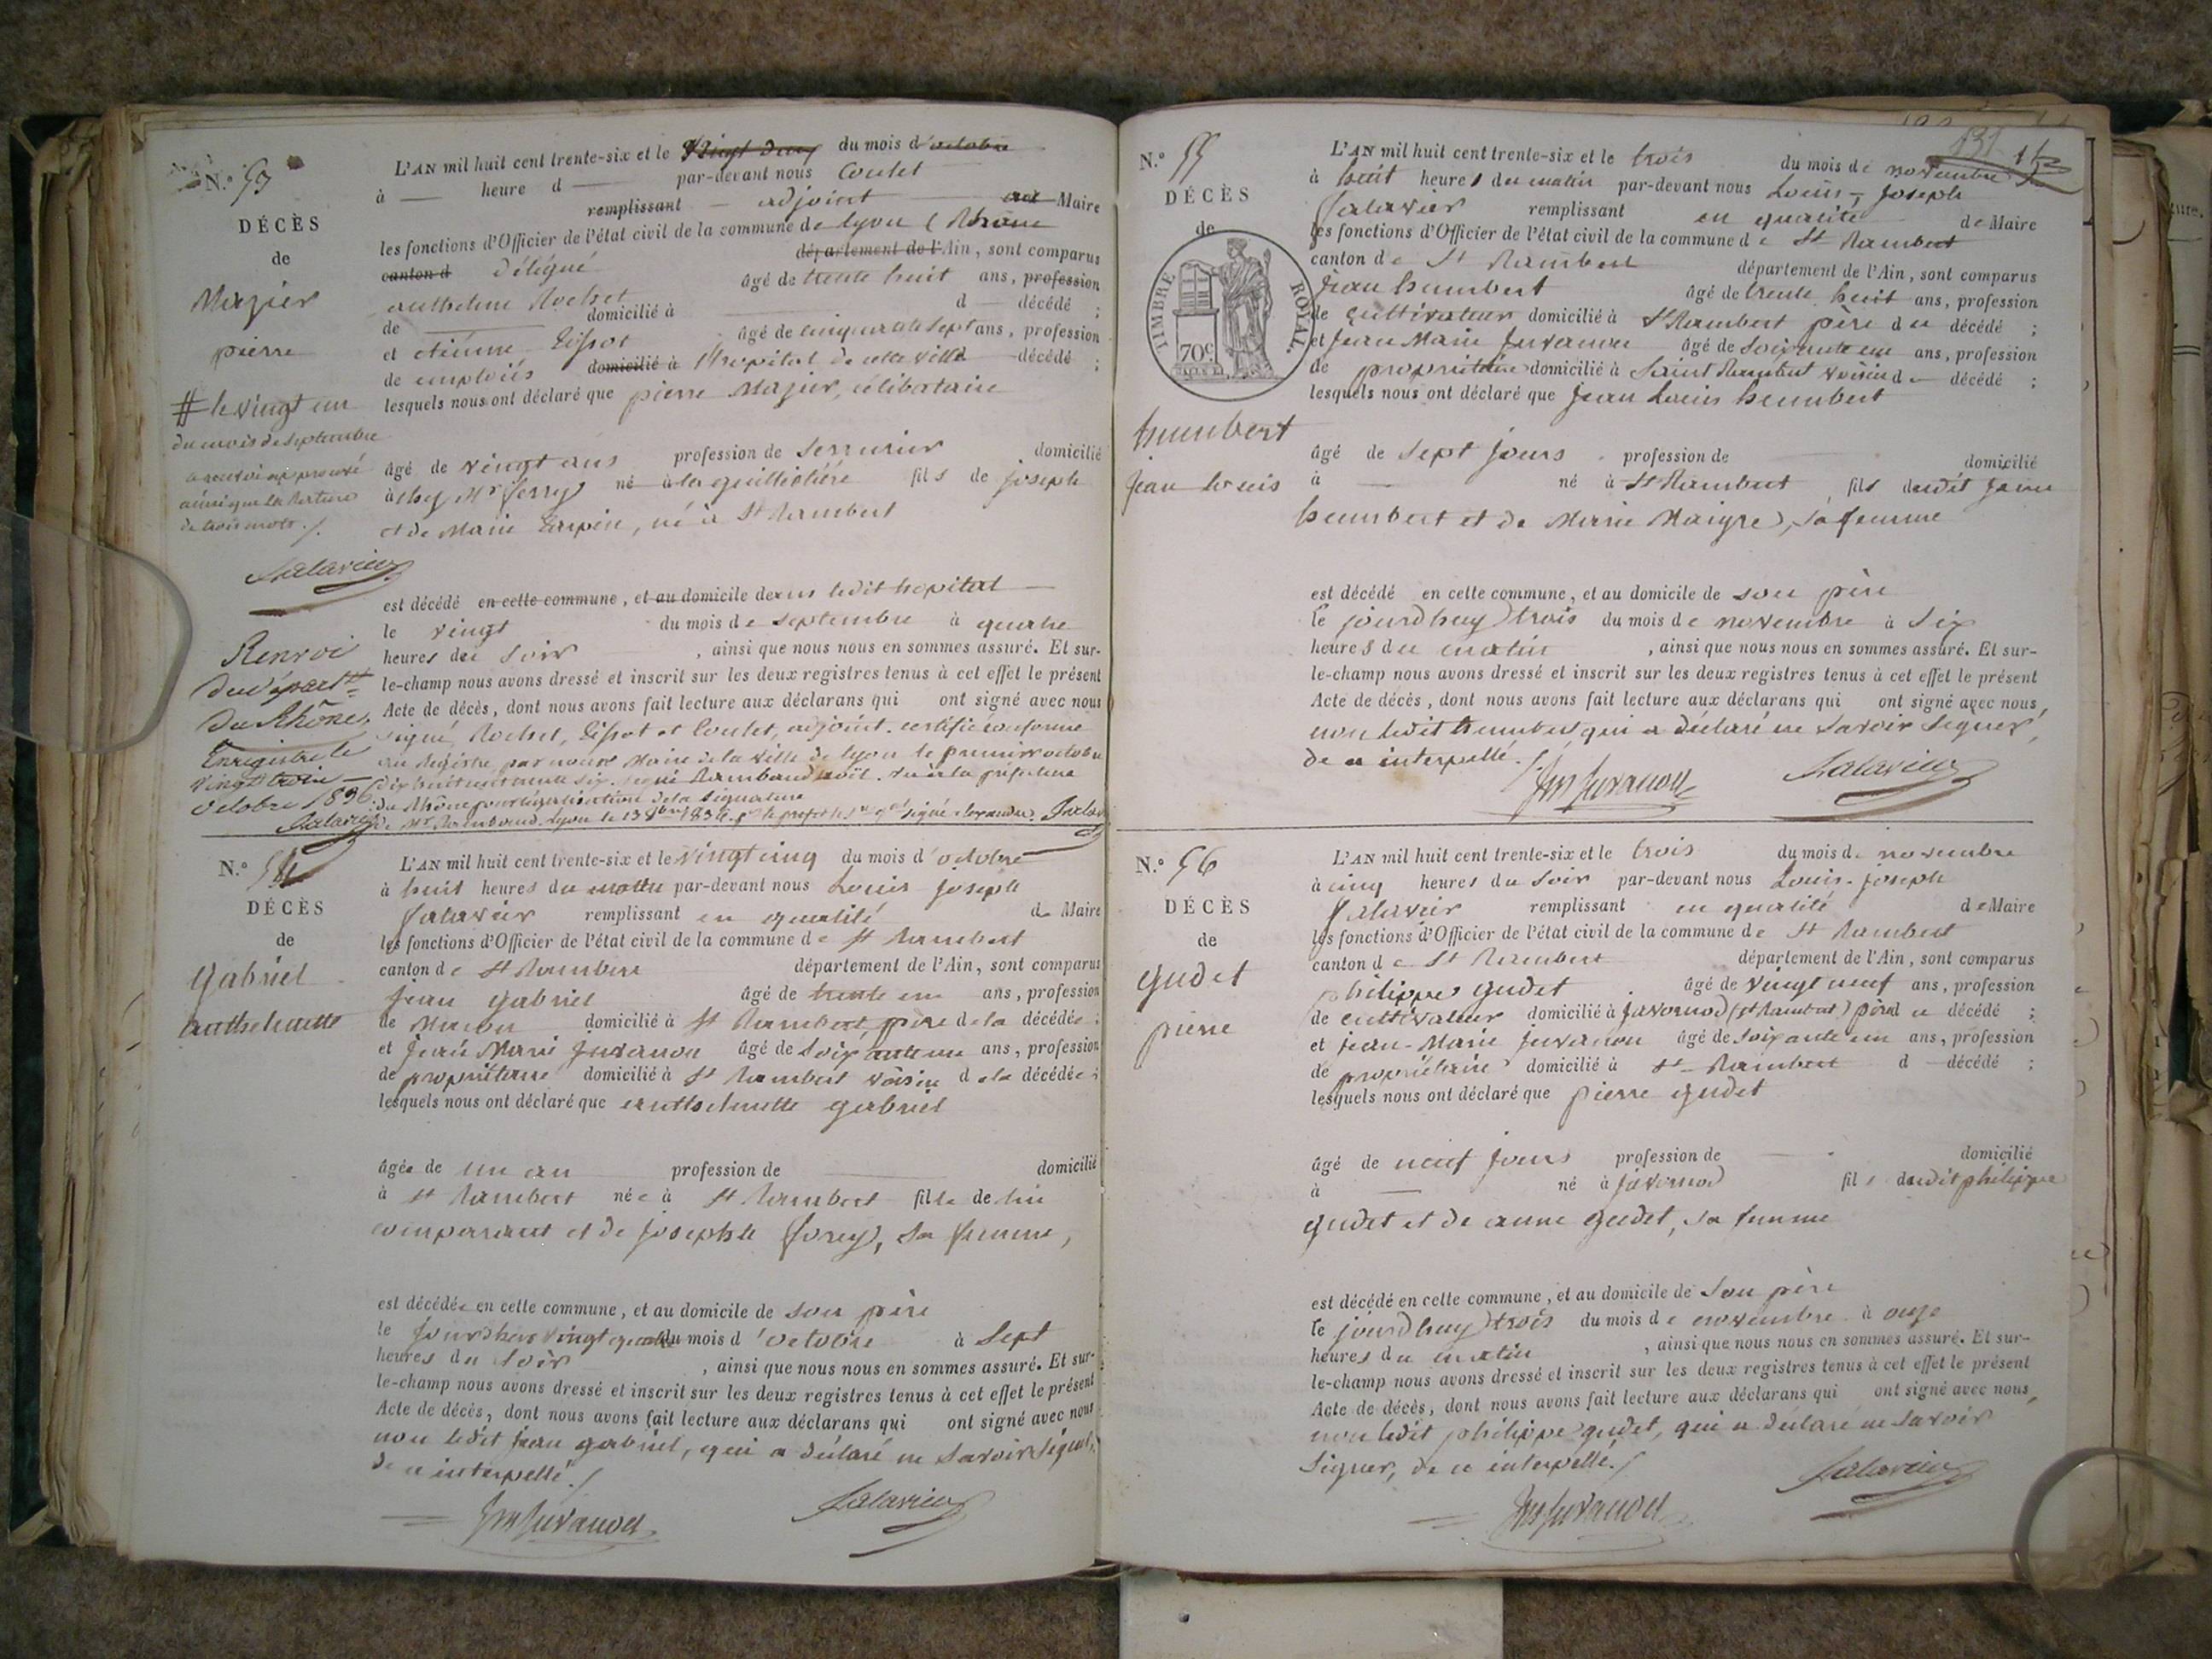 N.º 53
DÉCÈS
de
Mazier
pierre
# le vingt un
du mois de septembre
renvoi approuvé
ainsi que la rature
de trois mots ./.
Salavieu
Renvoi
du départt
du Rhône
Enregistré le
vingt trois
octobre 1836
Salavieu
L'AN mil huit cent trente-six et le vingt deux du mois d'octobre
à — heure d — par-devant nous Coulet
remplissant — adjoint — Maire
les fonctions d'Officier de l'état civil de la commune de Lyon (Rhône
canton d délégué département de l'Ain, sont comparus
anthelme Rochet âgé de trente huit ans, profession
de — domicilié à — d — décédé ;
et étienne Tissot âgé de cinquante sept ans, profession
de emploiés domicilié à l'hopital de cette ville décédé ;
lesquels nous ont déclaré que pierre Mazier, célibataire
âgé de vingt ans profession de serrurier domicilié
à chez Mr ferry né à la guillotière fils de joseph
et de Marie , né à St Rambert
est décédé en cette commune, et au domicile de dans ledit hopital
le vingt du mois de septembre à quatre
heures du soir , ainsi que nous nous en sommes assuré. Et sur-
le-champ nous avons dressé et inscrit sur les deux registres tenus à cet effet le présent
Acte de décès, dont nous avons fait lecture aux déclarans qui ont signé avec nous
signé Rochet, Tissot et Coulet, adjoint. certifié conforme
au régistre par nous Maire de la ville de Lyon le premier octobre
dix huit cent trente six. signé Rambaud . vu à la préfecture
du Rhône pour légalisation de la signature
de Mr Rambaud. Lyon le 13 8bre 1836. signé alexandre.
N.º 54
DÉCÈS
de
gabriel
anthelmette
L'AN mil huit cent trente-six et le vingt cinq du mois d'octobre
à huit heures du matin par-devant nous Louis joseph
Salavieu remplissant en qualité de Maire
les fonctions d'Officier de l'état civil de la commune de St Rambert
canton de St Rambert département de l'Ain, sont comparus
jean gabriel âgé de trente un ans, profession
de domicilié à St Rambert, père de la décédée ;
et jean Marie juvanon âgé de soixante un ans, profession
de propriétaire domicilié à St Rambert voisin de la décédée ;
lesquels nous ont déclaré que anthelmette gabriel
âgée de un an profession de — domicilié
à St Rambert née à St Rambert fille de lui
comparant et de josephte forey, sa femme,
est décédée en cette commune, et au domicile de son père
le jourdhuy vingt quatre du mois d'octobre à sept
heures du soir , ainsi que nous nous en sommes assuré. Et sur-
le-champ nous avons dressé et inscrit sur les deux registres tenus à cet effet le présent
Acte de décès, dont nous avons fait lecture aux déclarans qui ont signé avec nous
non ledit jean gabriel, qui a déclaré ne savoir signer,
de ce interpellé ./
Jm Juvanon Salavieu
N.º 55
DÉCÈS
de
TIMBRE ROYAL.
70c
humbert
jean Louis
131
L'AN mil huit cent trente-six et le trois du mois de novembre
à huit heures du matin par-devant nous Louis-joseph
Salavieu remplissant en qualité de Maire
les fonctions d'Officier de l'état civil de la commune de St Rambert
canton de St Rambert département de l'Ain, sont comparus
jean humbert âgé de trente huit ans, profession
de cultivateur domicilié à St Rambert père du décédé ;
et jean Marie juvanon âgé de soixante un ans, profession
de propriétaire domicilié à Saint Rambert voisin d décédé ;
lesquels nous ont déclaré que jean Louis humbert
âgé de sept jours profession de domicilié
à — né à St Rambert, fils dudit jean
humbert et de Marie Maigre, sa femme
est décédé en cette commune, et au domicile de son père
le jourdhuy trois du mois de novembre à six
heures du matin , ainsi que nous nous en sommes assuré. Et sur-
le-champ nous avons dressé et inscrit sur les deux registres tenus à cet effet le présent
Acte de décès, dont nous avons fait lecture aux déclarans qui ont signé avec nous,
non ledit humbert qui a déclaré ne savoir signer,
de ce interpellé ./.
Jm Juvanon Salavieu
N.º 56
DÉCÈS
de
gudet
pierre
L'AN mil huit cent trente-six et le trois du mois de novembre
à cinq heures du soir par-devant nous Louis-joseph
Salavieu remplissant en qualité de Maire
les fonctions d'Officier de l'état civil de la commune de St Rambert
canton de St Rambert département de l'Ain, sont comparus
philippe gudet âgé de vingt neuf ans, profession
de cultivateur domicilié à javornod (St Rambert) père du décédé ;
et jean-Marie juvanon âgé de soixante un ans, profession
de propriétaire domicilié à St Rambert d — décédé ;
lesquels nous ont déclaré que pierre gudet
âgé de neuf jours profession de — domicilié
à — né à javornod fils dudit philippe
gudet et de anne gudet, sa femme
est décédé en cette commune, et au domicile de son père
le jourdhuy trois du mois de novembre à onze
heures du matin , ainsi que nous nous en sommes assuré. Et sur-
le-champ nous avons dressé et inscrit sur les deux registres tenus à cet effet le présent
Acte de décès, dont nous avons fait lecture aux déclarans qui ont signé avec nous,
non ledit philippe gudet, qui a déclaré ne savoir
signer, de ce interpellé ./
Jm Juvanon Salavieu